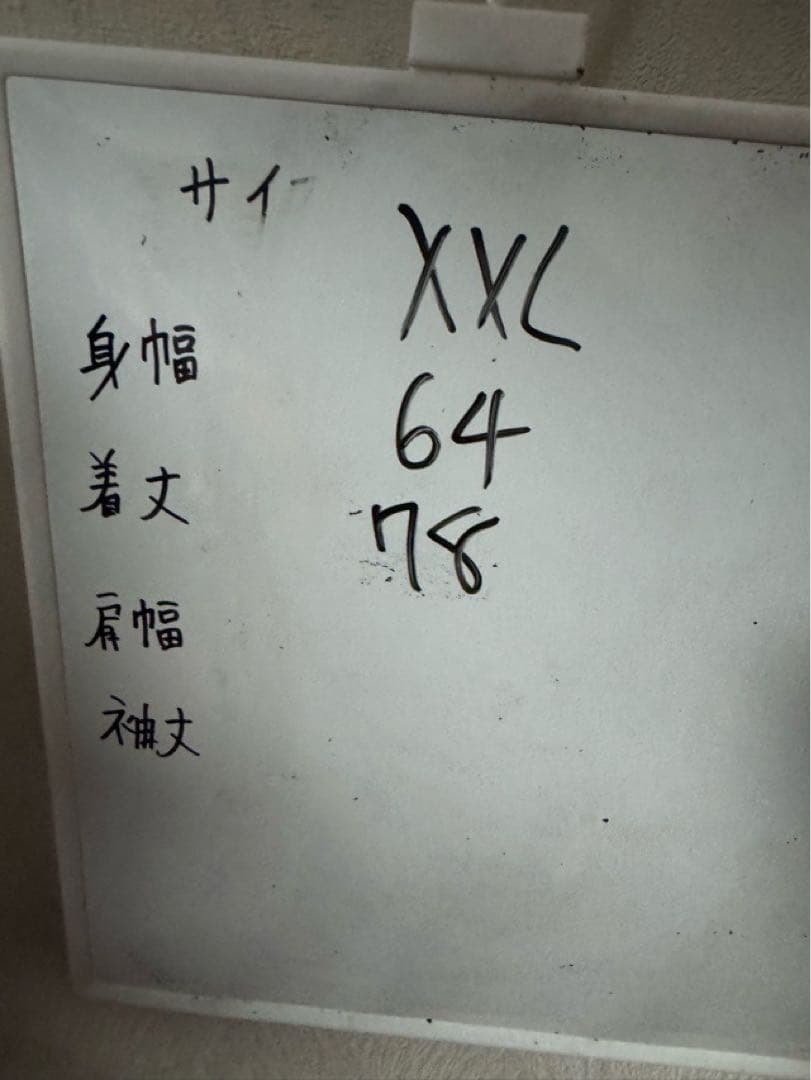 サイ
XXL
身幅 64
着丈 78
肩幅
袖丈